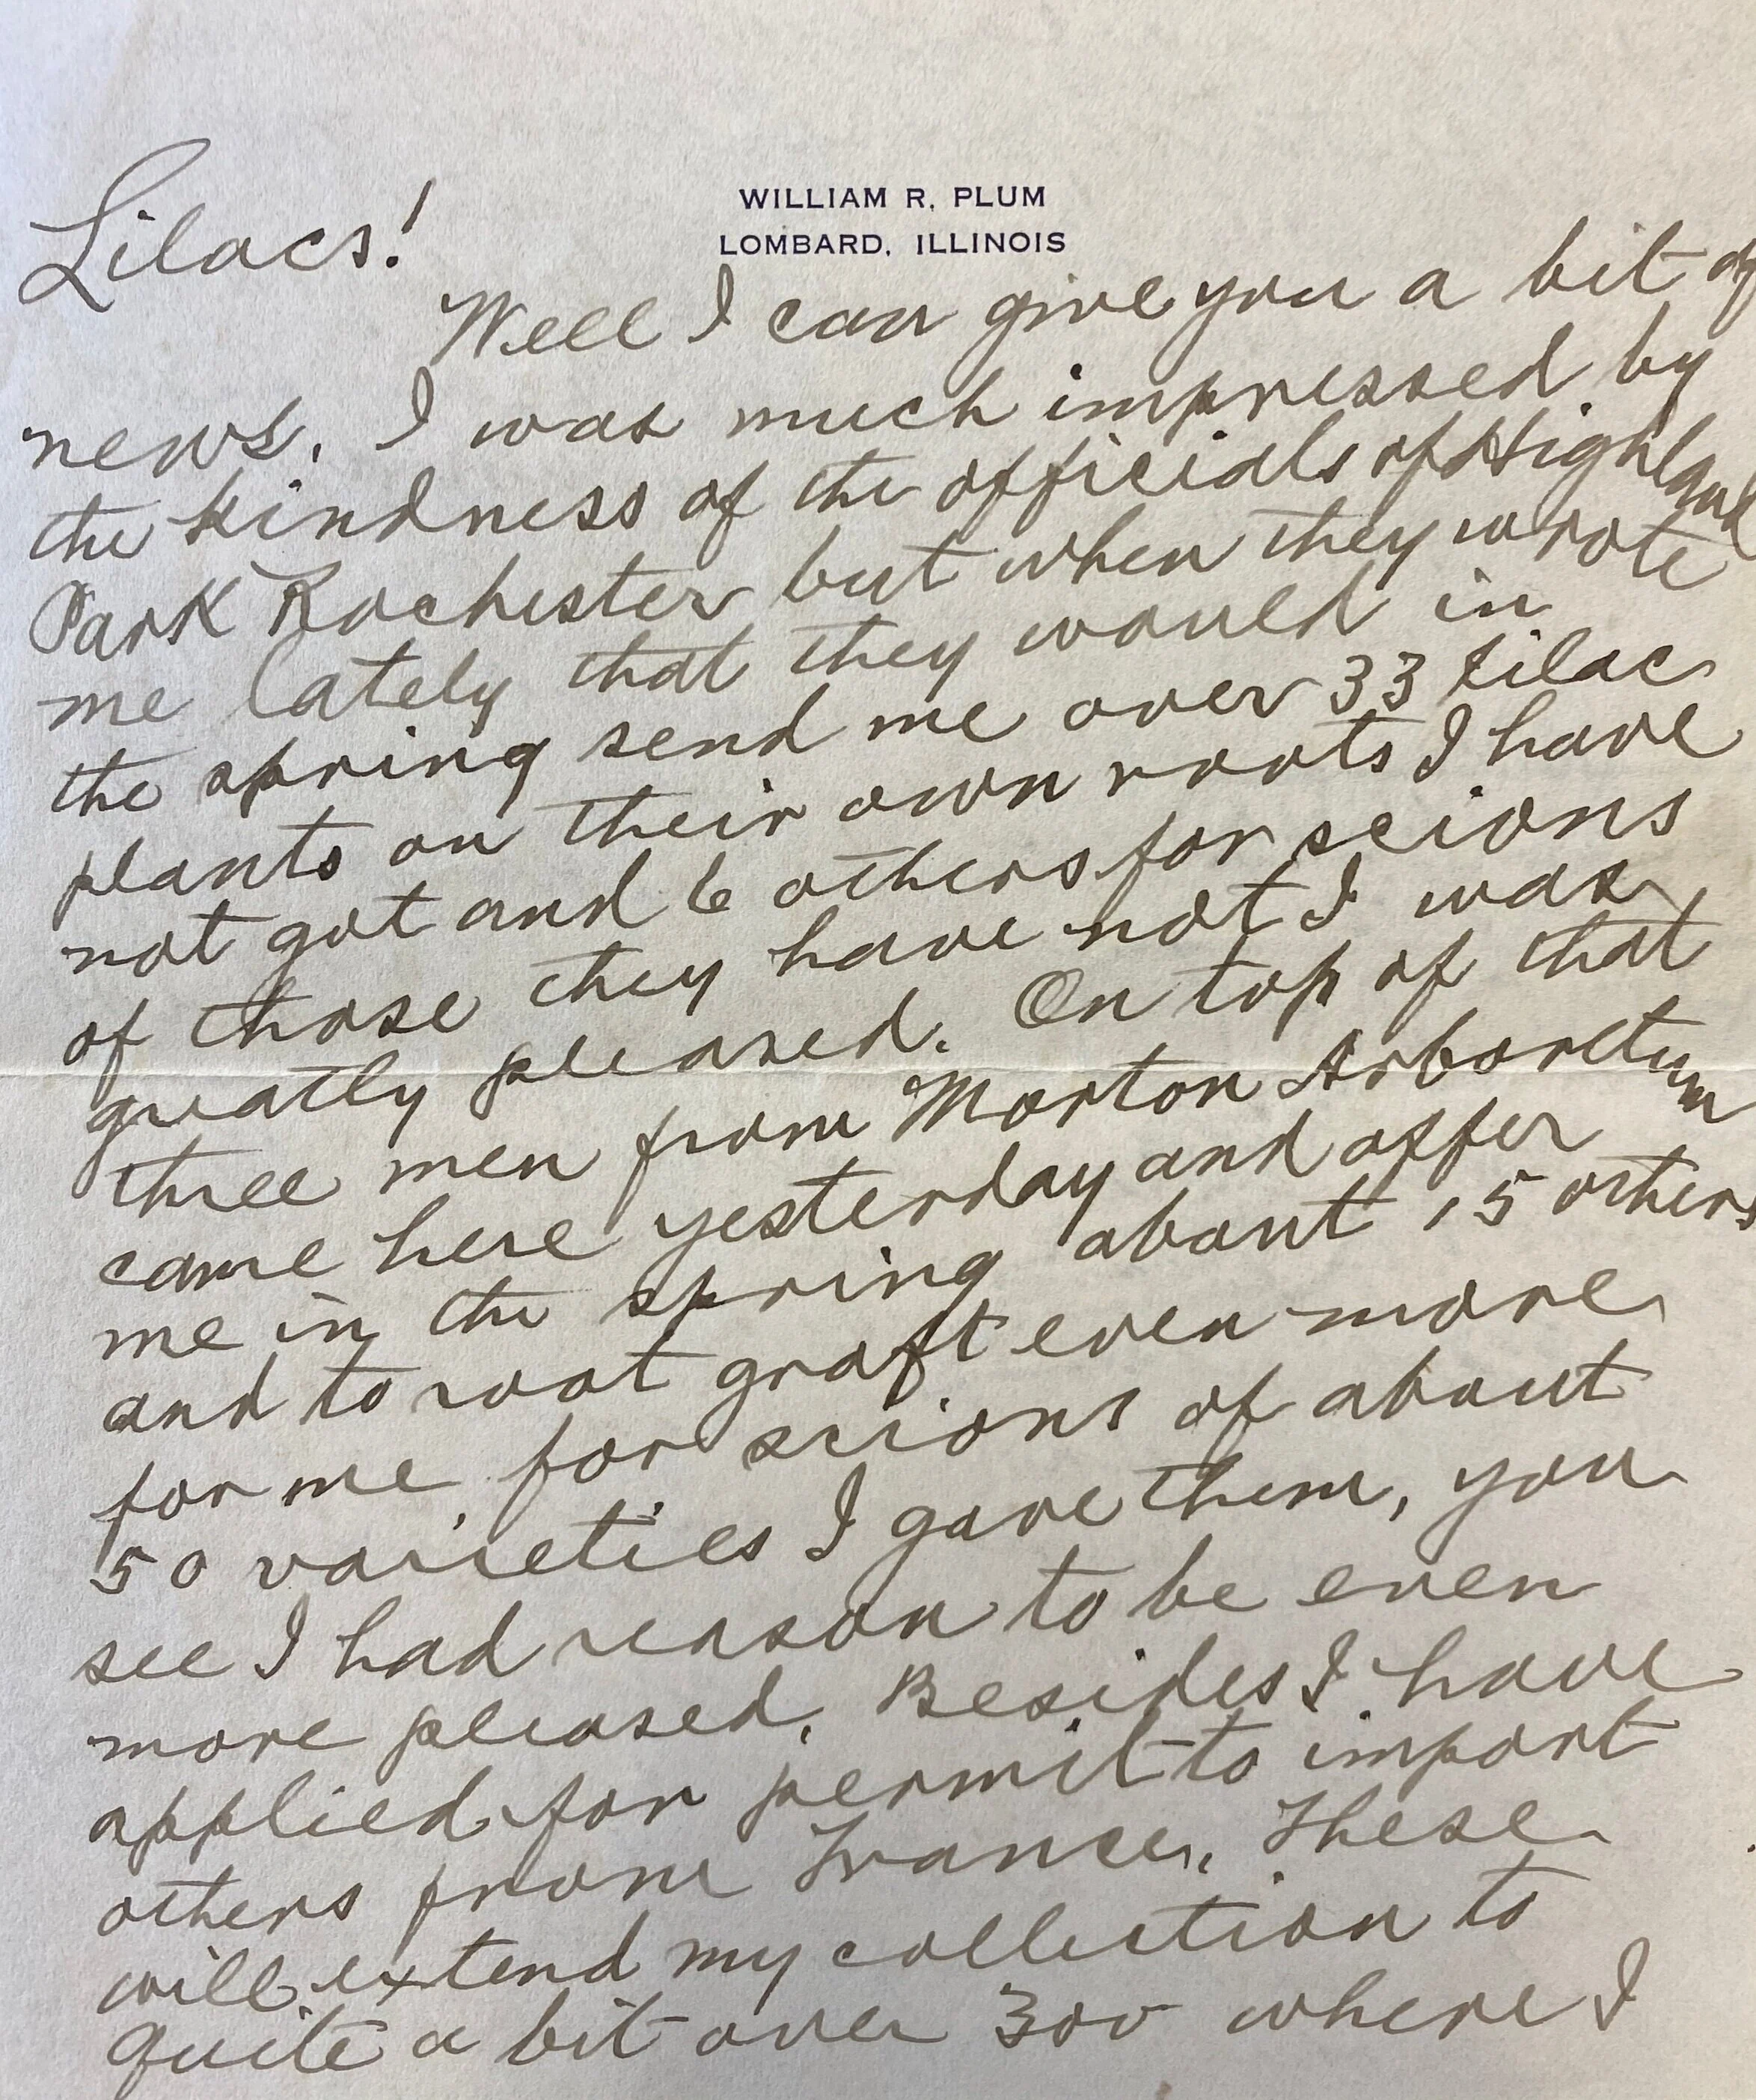 WILLIAM R. PLUM
LOMBARD, ILLINOIS
Lilacs!
Well I can give you a bit of
news. I was much impressed by
the kindness of the officials of Highland
Park Rochester but when they wrote
me lately that they would in
the spring send me over 33 Lilac
plants on their own roots I have
not got and 6 others for scions
of those they have not I was
greatly pleased. On top of that
three men from Morton Arboretum
came here yesterday and offer
me in the spring about 15 others
and to root graft even more
for me for scions of about
50 varieties I gave them, you
see I had reason to be even
more pleased. Besides I have
applied for permit to import
others from France. These
will extend my collection to
quite a bit over 300 where I